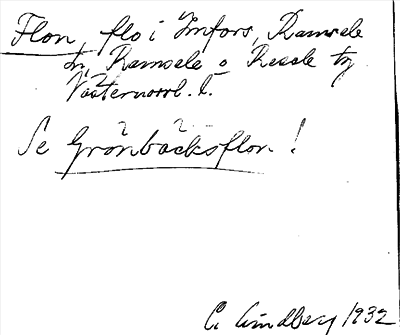 Flon, flo i Imfors, Ramsele
sn, Ramsele o Resele tg
Västernorrl. l.
Se Grönbäcksflon!
C. Lindberg 1932